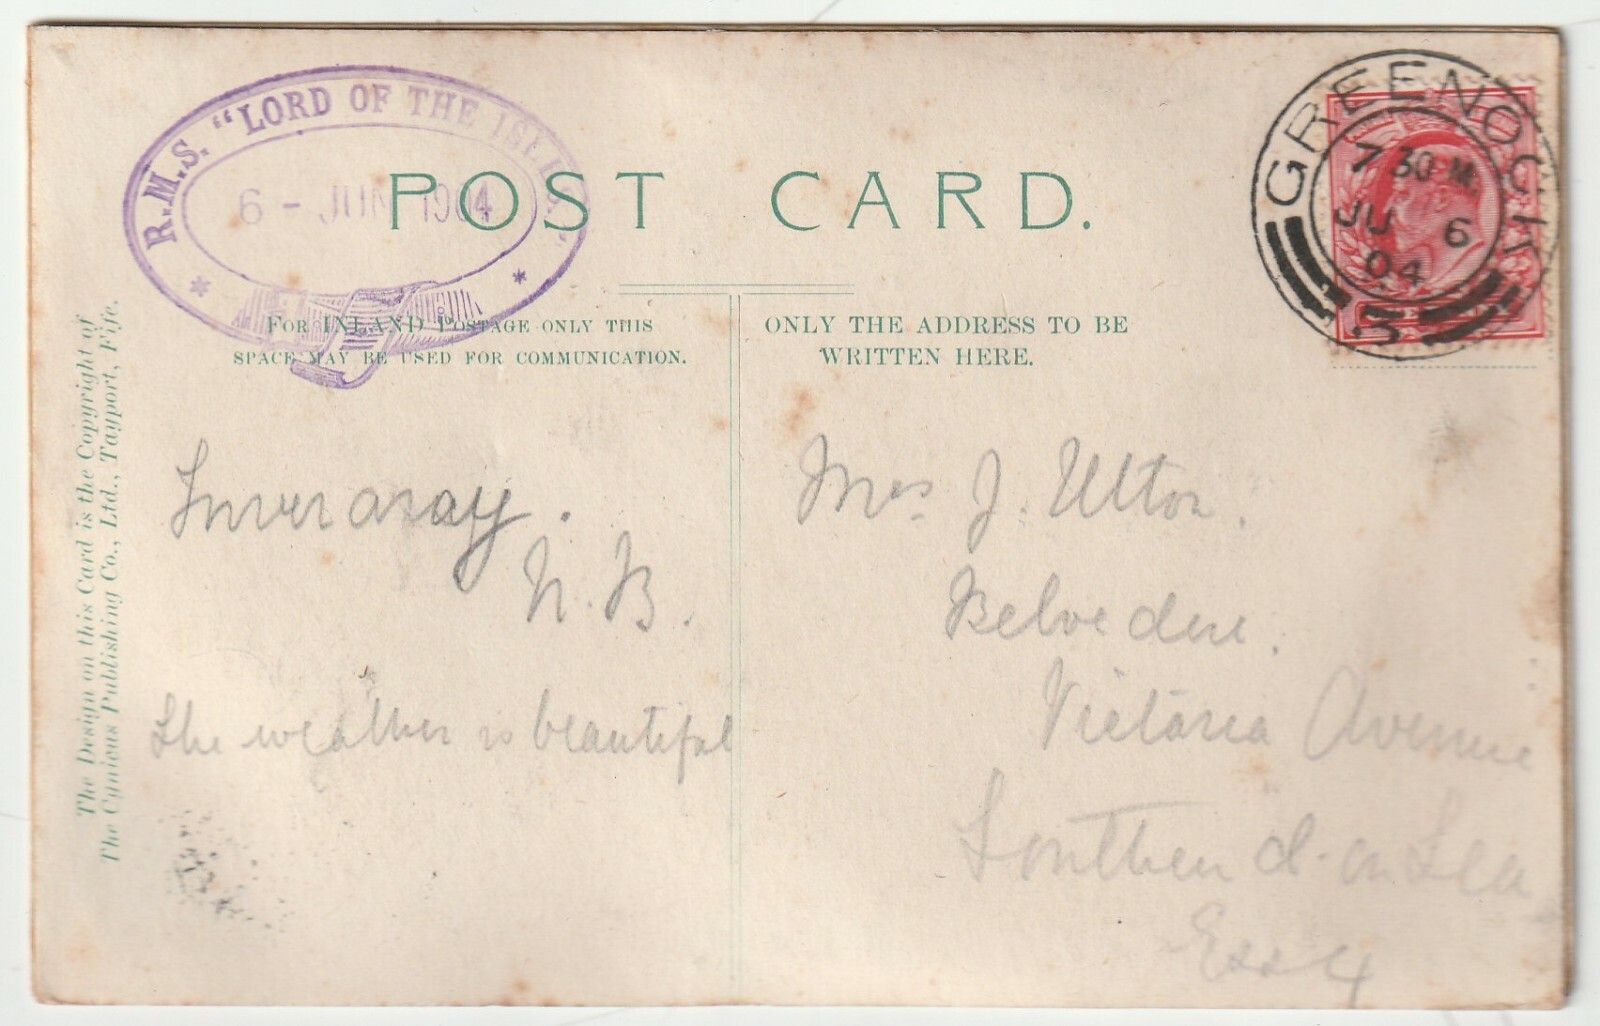 R.M.S. "LORD OF THE ISLES."
6 - JUN 1904
POST CARD.
GREENOCK
7 30 M.
JU 6
04
5
FOR INLAND POSTAGE ONLY THIS
SPACE MAY BE USED FOR COMMUNICATION.
ONLY THE ADDRESS TO BE
WRITTEN HERE.
The Design on this Card is the Copyright of
The Cynicus Publishing Co., Ltd., Tayport, Fife.
Inveraray.
N.B.
The weather is beautiful
Mrs J. Ulton.
Belvedere.
Victoria Avenue
Southend-on Sea
Essex